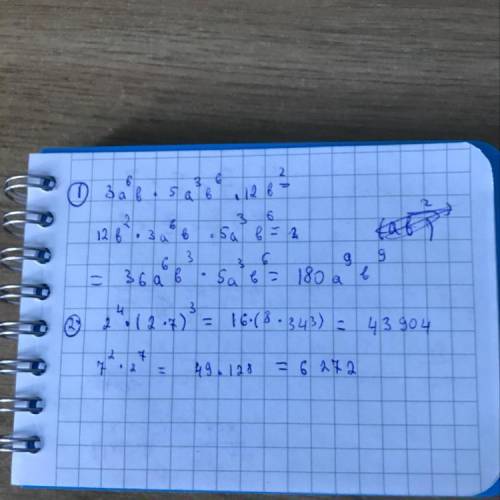 ① 3a⁶в · 5a³в⁶ · 12в² =
12в² · 3a⁶в · 5a³в⁶ =
= 36a⁶в³ · 5a³в⁶ = 180a⁹в⁹
② 2⁴ · (2 · 7)³ = 16 · (8 · 343) = 43904
7² · 2⁷ = 49 · 128 = 6272